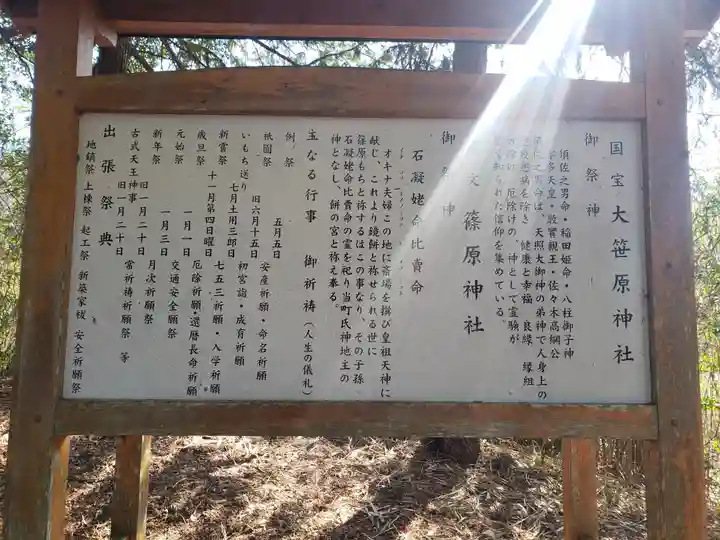 国宝大笹原神社
御祭神
須佐之男命・稲田姫命・八柱御子神
宇多天皇・敦實親王・佐々木高綱公
須佐之男命は、天照大御神の弟神で人身上の
疫病を除き 健康と幸福 良縁 縁組
厄除けの 神として霊験が
知られた信仰を集めている。
篠原神社
御祭神
石凝姥命比賣命
オキナ夫婦この地に斎場を撰び皇祖天神に
献じ、これより鏡餅と称せられる世に
篠原もちと称するはこの事なり、その子孫
石凝姥命比賣命の霊を祀り当町氏神地主の
神となし、餅の宮と称え奉る。
主なる行事 御祈祷(人生の儀礼)
例祭 五月五日 安産祈願・命名祈願
祇園祭 旧六月十五日 初宮詣・成育祈願
いもち送り 七月土用三郎日 七五三祈願・入学祈願
新嘗祭 十一月第四日曜日 厄除祈願・還暦長命祈願
歳旦祭 一月一日 交通安全願祭
元始祭 一月三日 月次祈願祭
新年祭 旧一月二十日 常祈祷祈願祭 等
古式天王神事 旧一月二十日
出張祭典
地鎮祭 上棟祭 起工祭 新築家祓 安全祈願祭